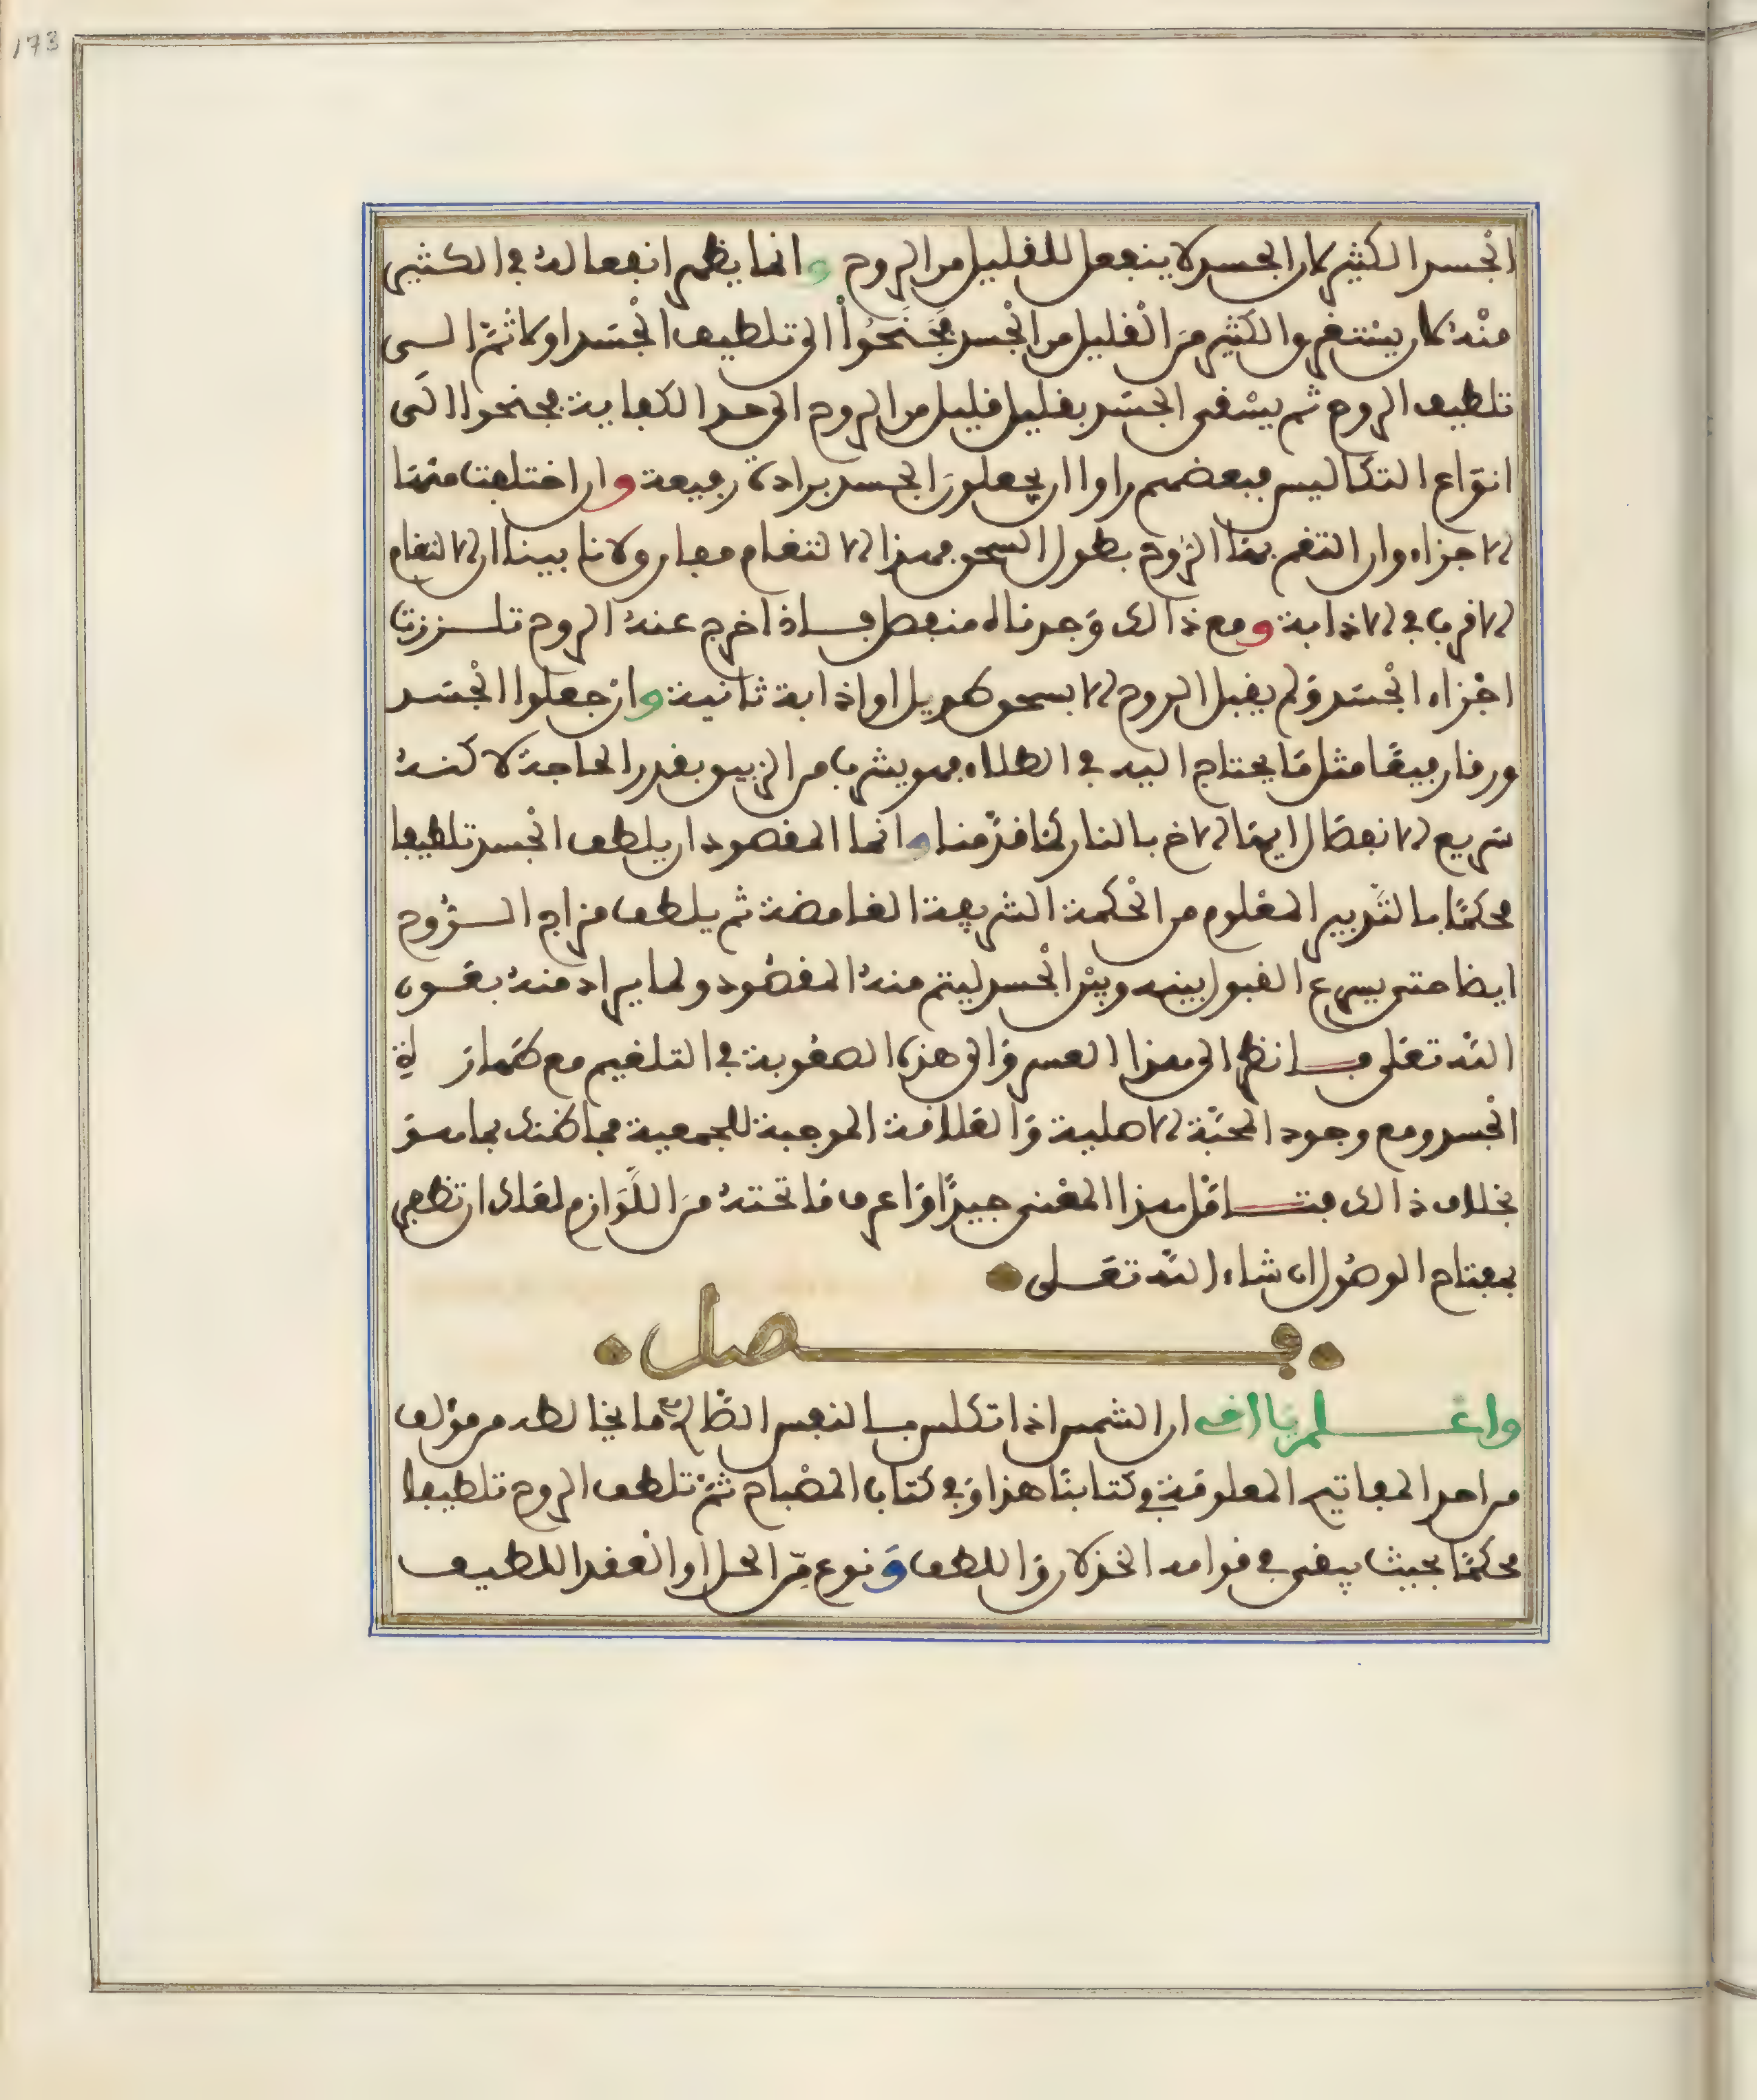 173
الجسد الكثير لان الجسد لا ينفعل للقليل من الروح وانما يظهر انفعاله في الكثير
منه لان يستغرق الكثير من القليل من الجسد فجنحوا الى تلطيف الجسد اولا ثم الى
تلطيف الروح ثم يسقى الجسد بقليل قليل من الروح الى حد الكفاية فجنحوا الى
انواع التكاليس فبعضهم راوا ان يجعلون الجسد برادة رفيعة وان اختلفت منها
الاجزاء وان التغم بها الروح بطول السحق فهذا الالتغام مفارق لانا بينا ان الالتغام
الاقرب في الاذابة ومع ذالك وجدناه منفصل فاذا خرج عنه الروح تلززت
اجزاء الجسد ولم يقبل الروح الا بسحق طويل او اذابة ثانية وان جعلوا الجسد
ورقا رقيقا مثل ما يحتاج اليه في الطلاء فهو يشرب من الزيبق بقدر الحاجة لاكنه
سريع الانفصال ايضا الاخ بالنار كما قدمنا وانما المقصود ان يلطف الجسد تلطيفا
محكما بالتدبير المعلوم من الحكمة الشريفة الغامضة ثم يلطف مزاج الروح
ايضا حتى يسرع القبول بينه وبين الجسد ليتم منه المقصود ولما يراد منه بعون
الله تعلى فانظر الى هذا العسر والى هذه الصعوبة في التلغيم مع طهارة
الجسد ومع وجود المحبة الاصلية والعلاقة الموجبة للجمعية فما ظنك بما هو
بخلاف ذالك فتامل هذا المعنى جيدا واعرف ما تحته من اللوازم لعلك ان تظفر
بمفتاح الوصول ان شاء الله تعلى
فصل
واعلم يا اخي ان الشمس اذا تكلس بالنفس الطاهر ما يخالطه من مؤلف
من احد المفاتيح المعلومة في كتابنا هذا وفي كتاب المصباح ثم تلطف الروح تلطيفا
محكما بحيث يبقى في قوامه الخزلان واللطف ونوع من الحل او العقد اللطيف